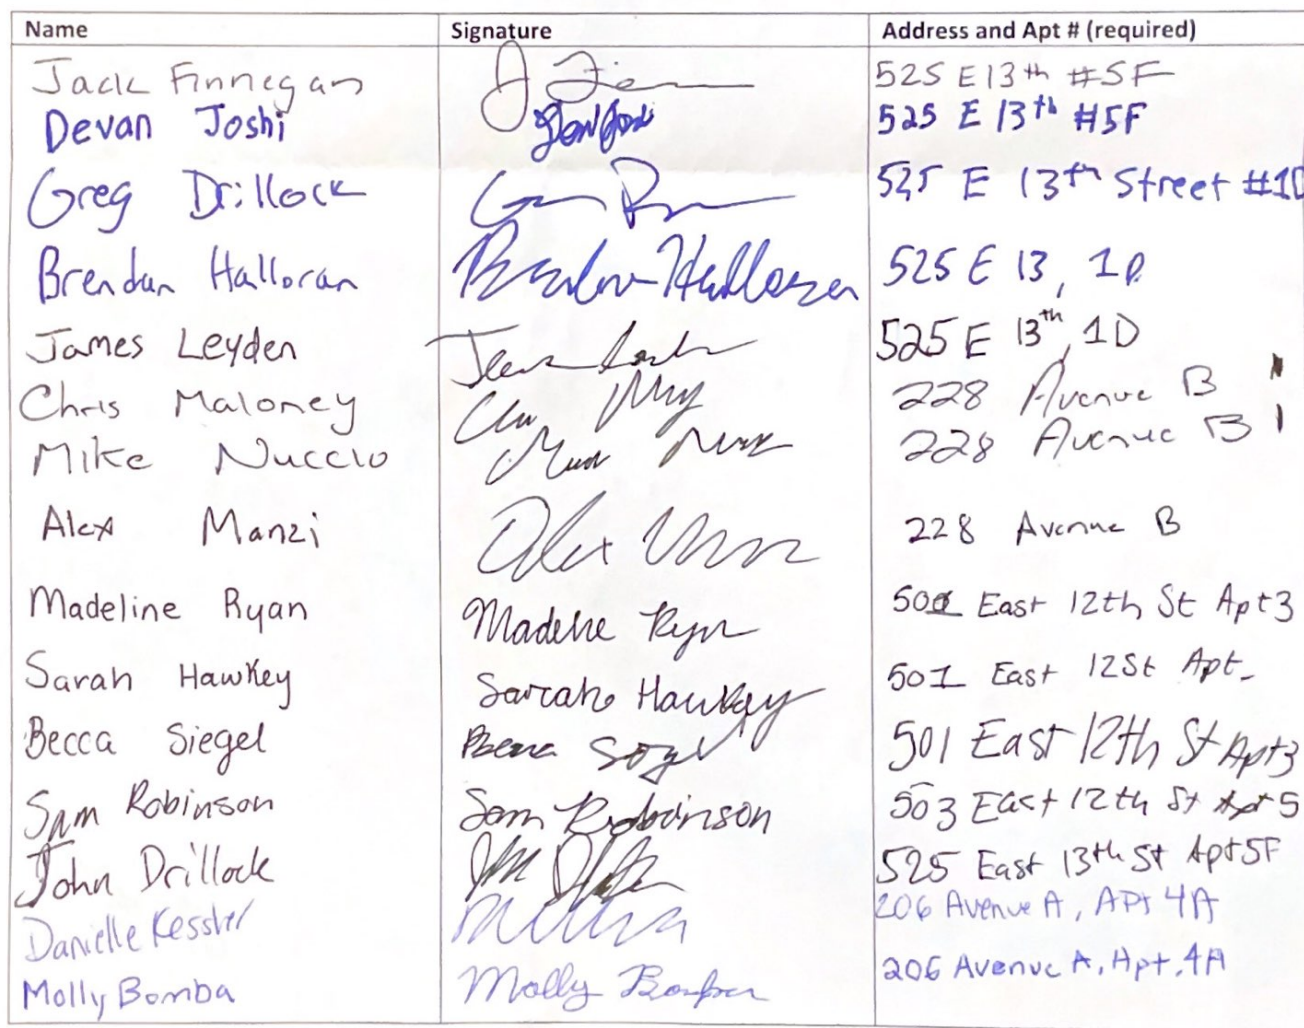 Name Signature Address and Apt # (required)
Jack Finnegan J Fi 525 E 13th #5F
Devan Joshi 525 E 13th #5F
Greg Drillock 525 E 13th Street #1D
Brendan Halloran Brendan Halloran 525 E 13, 1D
James Leyden 525 E 13th, 1D
Chris Maloney 228 Avenue B
Mike Nuccio 228 Avenue B
Alex Manzi Alex 228 Avenue B
Madeline Ryan Madeline Ryan 501 East 12th St Apt 3
Sarah Hawkey Sarah Hawkey 501 East 12 St Apt
Becca Siegel Becca 501 East 12th St Apt 3
Sam Robinson Sam Robinson 503 East 12th St Apt 5
John Drillock 525 East 13th St Apt 5F
Danielle Kessler 206 Avenue A, APt 4A
Molly Bomba Molly Bomba 206 Avenue A, Apt. 4A